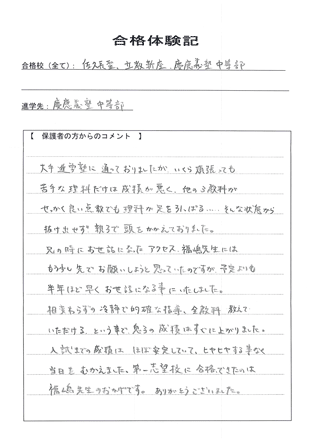 合格体験記
合格校（全て）： 佐久長聖、立教新座、慶應義塾中等部
進学先： 慶應義塾中等部
【 保護者の方からのコメント 】
大手進学塾に通っておりましたが、いくら頑張っても
苦手な理科だけは成績が悪く、他の3教科が
せっかく良い点数でも理科が足を引っぱる…。そんな状態から
抜け出せず親子で頭をかかえておりました。
兄の時にお世話になったアクセス福嶋先生には
もう少し先でお願いしようと思っていたのですが、予定よりも
半年ほど早くお世話になる事にいたしました。
相変わらずの冷静で的確な指導、全教科教えて
いただける、という事で息子の成績はすぐに上がりました。
入試までの成績は ほぼ安定していて、ヒヤヒヤする事なく
当日をむかえました。第一志望校に合格できたのは
福嶋先生のおかげです。ありがとうございました。